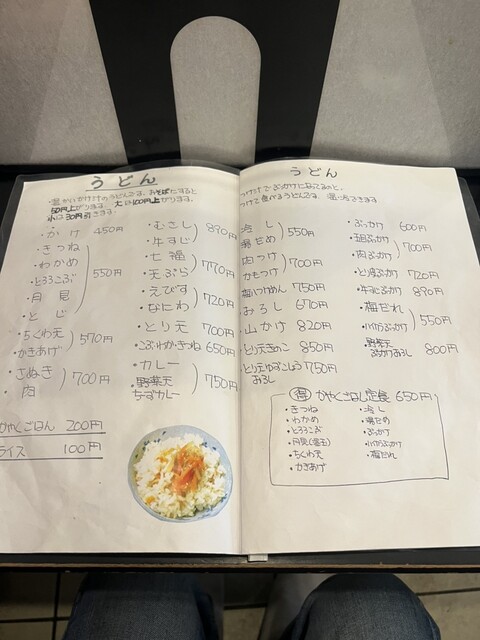 うどん
・温かいかけ汁のうどんです。おそばにすると
50円上がります。大は100円上がります。
小は30円引きます。
・かけ 450円
・きつね
・わかめ
・とろろこぶ
・月見
・とじ
550円
・ちくわ天
・かきあげ
570円
・さぬき
・肉
700円
・むさし
・牛すじ
890円
・七福
・天ぷら
770円
・えびす
・なにわ
720円
・とり天 700円
・こぶわかきつね 650円
・カレー
・野菜天
なすカレー
750円
かやくごはん 200円
ライス 100円
うどん
つけて食べるうどんです。温・冷できます
・冷し
・湯だめ
550円
・肉つけ
・かもつけ
700円
・梅いつけめん 750円
・おろし 670円
・山かけ 820円
・とり天きのこ 850円
・とり天ゆずこしょう 750円
おろし
・ぶっかけ 600円
・五目ぶっかけ
・肉ぶっかけ
700円
・とり天ぶっかけ 720円
・牛すじぶっかけ 890円
・梅だれ
550円
・野菜天
ぶっかけおろし 800円
得 かやくごはん定食 650円
・きつね
・わかめ
・とろろこぶ
・ちくわ天
・かきあげ
・冷し
・湯だめ
・ぶっかけ
・梅だれ